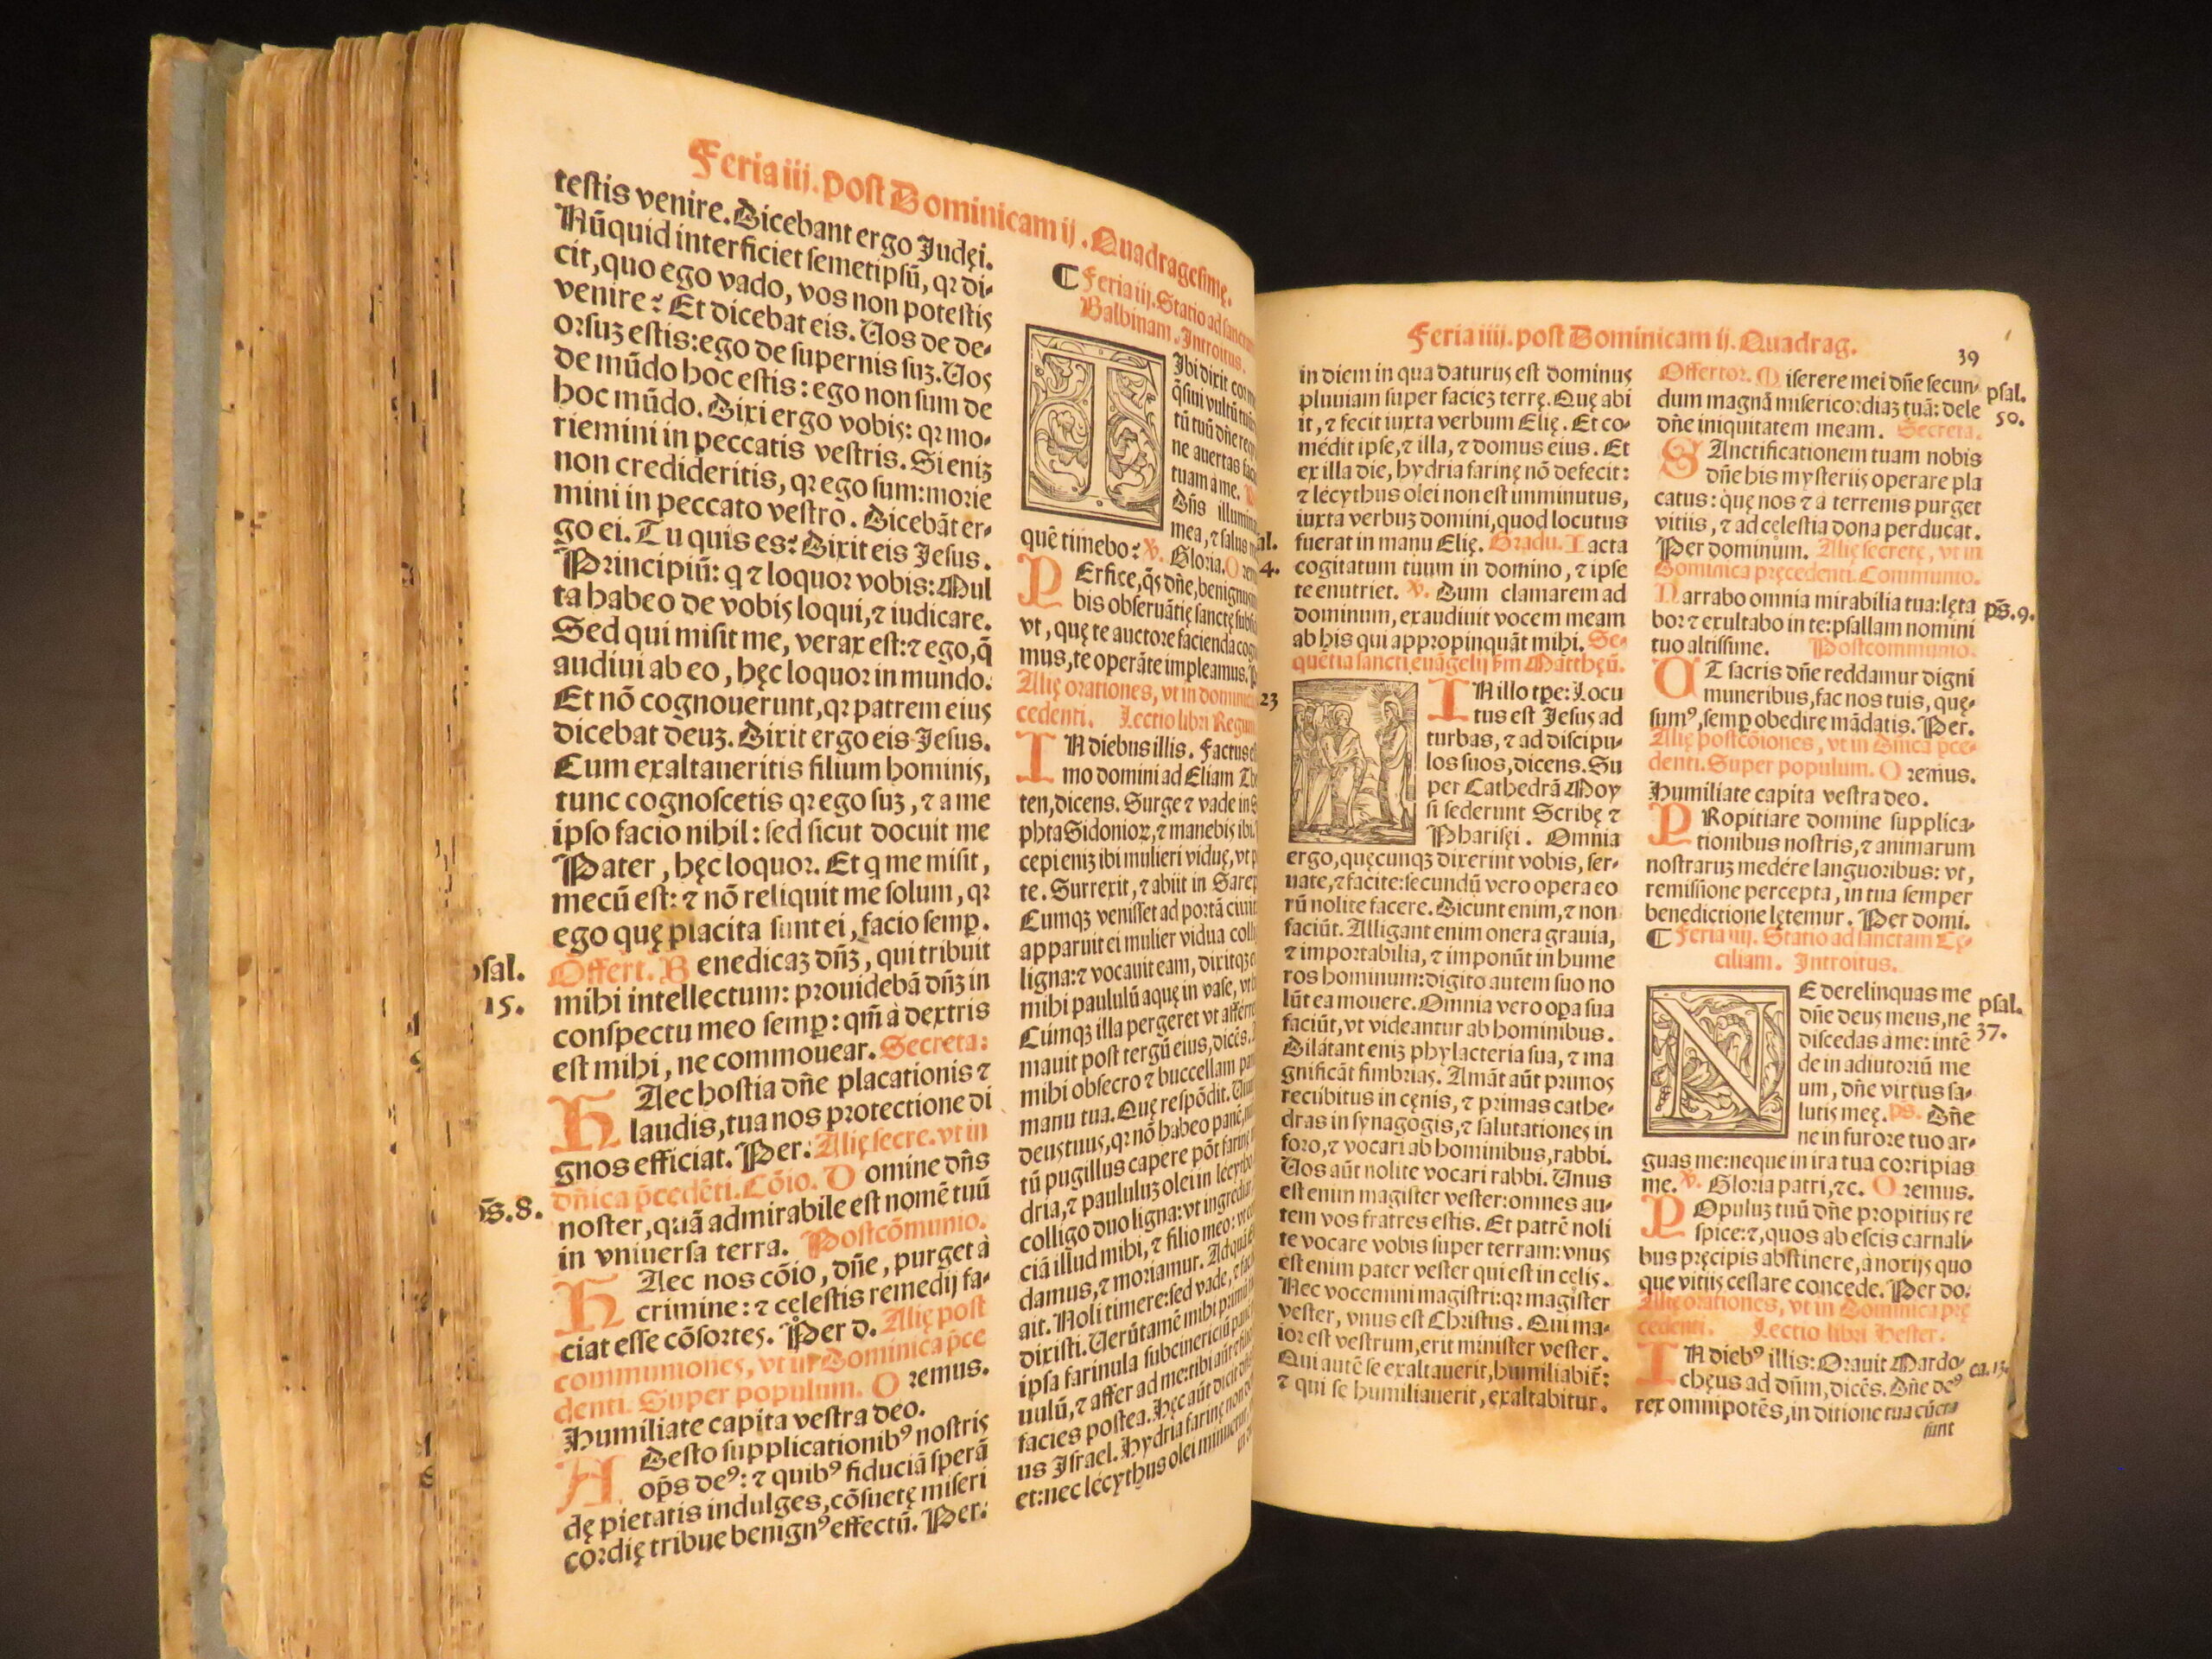 Feria iij. post Dominicam ij. Quadragesimę.
testis venire. Dicebant ergo Judęi.
Nũquid interficiet semetipsũ, qꝛ di-
cit, quo ego vado, vos non potestis
venire? Et dicebat eis. Uos de de-
orsuʒ estis: ego de supernis suʒ. Uos
de mũdo hoc estis: ego non sum de
hoc mũdo. Dixi ergo vobis: qꝛ mo-
riemini in peccatis vestris. Si eniʒ
non credideritis, qꝛ ego sum: morie
mini in peccato vestro. Dicebãt er-
go ei. Tu quis es? Dixit eis Jesus.
Principiũ: q ⁊ loquor vobis: Mul
ta habeo de vobis loqui, ⁊ iudicare.
Sed qui misit me, verax est: ⁊ ego, q̃
audiui ab eo, hęc loquor in mundo.
Et nõ cognouerunt, qꝛ patrem eius
dicebat deuʒ. Dixit ergo eis Jesus.
Cum exaltaueritis filium hominis,
tunc cognoscetis qꝛ ego suʒ, ⁊ a me
ipso facio nihil: sed sicut docuit me
Pater, hęc loquor. Et q me misit,
mecũ est: ⁊ nõ reliquit me solum, qꝛ
ego quę placita sunt ei, facio semp̱.
psal.
15.
Offert. Benedicaʒ dñʒ, qui tribuit
mihi intellectum: prouidebã dñʒ in
conspectu meo semp̱: qm̃ à dextris
est mihi, ne commouear. Secreta:
HAec hostia dñe placationis ⁊
laudis, tua nos protectione di
gnos efficiat. Per: Alię secre. vt in
dñica p̃cedẽti. Cõio. Domine dñs
ps. 8.
noster, quã admirabile est nomẽ tuũ
in vniuersa terra. Postcõmunio.
HAec nos cõio, dñe, purget à
crimine: ⁊ cęlestis remedij fa-
ciat esse cõsortes. Per d. Alię post
communiones, vt in Dominica p̃ce
denti. Super populum. Oremus.
Humiliate capita vestra deo.
ADesto supplicationibꝰ nostris
op̃s deꝰ: ⁊ quibꝰ fiduciã sperã
dę pietatis indulges, cõsuetę miseri
cordię tribue benignꝰ effectũ. Per:
C Feria iij. Statio ad
Balbinam. Introitus.
TIbi dixit cor
q̃siui vultũ
tũ tuũ dñe
ne auertas
tuam à me.
Dñs
mea, ⁊ salus
quẽ timebo? ℣. Gloria.
PErfice, q̃s dñe,
bis obseruãtię sanctę
vt, quę te auctore facienda
mus, te operãte impleamus.
Alię orationes, vt in
cedenti. Lectio libri Regum
IN diebus illis. Factus
mo domini ad Eliam
ten, dicens. Surge ⁊ vade in
phta Sidonioꝝ, ⁊ manebis ibi.
cepi eniʒ ibi mulieri viduę, vt
te. Surrexit, ⁊ abiit in
Cumqʒ venisset ad portã
apparuit ei mulier vidua
ligna: ⁊ vocauit eam, dixitqʒ
mihi paululũ aquę in vase, vt
Cũmqʒ illa pergeret vt
mauit post tergũ eius, dicẽs.
mihi obsecro ⁊ buccellam
manu tua. Quę respõdit.
deus tuus, qꝛ nõ habeo panẽ,
tũ pugillus capere põt
dria, ⁊ paululuʒ olei in
colligo duo ligna: vt
ciã illud mihi, ⁊ filio meo:
damus, ⁊ moriamur.
ait. Noli timere: sed vade,
dixisti. Uerũtamẽ mihi
ipsa farinula subcinericiũ
uulũ, ⁊ affer ad me: tibi aũt
facies postea. Hęc aũt dicit
us Israel. Hydria farinę non
et: nec lécythus olei minuetur,
Feria iiij. post Dominicam ij. Quadrag.
39
al.
4.
23
in diem in qua daturus est dominus
pluuiam super facieʒ terrę. Quę abi
it, ⁊ fecit iuxta verbum Elię. Et co-
médit ipse, ⁊ illa, ⁊ domus eius. Et
ex illa die, hydria farinę nõ defecit:
⁊ lécythus olei non est imminutus,
iuxta verbuʒ domini, quod locutus
fuerat in manu Elię. Gradu. Iacta
cogitatum tuum in domino, ⁊ ipse
te enutriet. ℣. Dum clamarem ad
dominum, exaudiuit vocem meam
ab his qui appropinquãt mihi. Se-
quẽtia sancti euãgelij s̃m Matthęũ.
IN illo tp̃e: Locu
tus est Jesus ad
turbas, ⁊ ad discipu-
los suos, dicens. Su
per Cathedrã Moy
si sederunt Scribę ⁊
Pharisęi. Omnia
ergo, quęcunqʒ dixerint vobis, ser-
uate, ⁊ facite: secundũ vero opera eo
rũ nolite facere. Dicunt enim, ⁊ non
faciũt. Alligant enim onera grauia,
⁊ importabilia, ⁊ imponũt in hume
ros hominum: digito autem suo no
lũt ea mouere. Omnia vero op̱a sua
faciũt, vt videantur ab hominibus.
Dilátant eniʒ phylacteria sua, ⁊ ma
gnificãt fimbrias. Amãt aũt primos
recúbitus in cęnis, ⁊ primas cathe-
dras in synagogis, ⁊ salutationes in
foro, ⁊ vocari ab hominibus, rabbi.
Uos aũt nolite vocari rabbi. Unus
est enim magister vester: omnes au-
tem vos fratres estis. Et patrẽ noli
te vocare vobis super terram: vnus
est enim pater vester qui est in cęlis.
Nec vocemini magistri: qꝛ magister
vester, vnus est Christus. Qui ma-
ior est vestrum, erit minister vester.
Qui autẽ se exaltauerit, humiliabit̃:
⁊ qui se humiliauerit, exaltabitur.
Offertor. Miserere mei dñe secun-
psal.
50.
dum magnã misericordiaʒ tuã: dele
dñe iniquitatem meam. Secreta.
SAnctificationem tuam nobis
dñe his mysteriis operare pla
catus: quę nos ⁊ à terrenis purget
vitiis, ⁊ ad cęlestia dona perducat.
Per dominum. Alię secretę, vt in
Dominica pręcedenti. Communio.
Narrabo omnia mirabilia tua: lęta
ps. 9.
bor ⁊ exultabo in te: psallam nomini
tuo altissime. Postcommunio.
UT sacris dñe reddamur digni
muneribus, fac nos tuis, quę-
sumꝰ, semp̱ obedire mãdatis. Per.
Alię postcõiones, vt in Dñica p̃ce-
denti. Super populum. Oremus.
Humiliate capita vestra deo.
PRopitiare domine supplica-
tionibus nostris, ⁊ animarum
nostraruʒ medére languoribus: vt,
remissione percepta, in tua semper
benedictione lętemur. Per domi.
C Feria iiij. Statio ad sanctam Cę-
ciliam. Introitus.
NE derelinquas me
psal.
37.
dñe deus meus, ne
discedas a me: intẽ
de in adiutoriũ me
um, dñe virtus sa-
lutis meę. ps. Dñe
ne in furore tuo ar-
guas me: neque in ira tua corripias
me. ℣. Gloria patri, ⁊c. Oremus.
POpuluʒ tuũ dñe propitius re
spice: ⁊, quos ab escis carnali-
bus pręcipis abstinere, à noxijs quo
que vitijs cessare concede. Per do.
Alię orationes, vt in Dominica prę
cedenti. Lectio libri Hester.
IN diebꝰ illis: Orauit Mardo-
ca. 13.
chęus ad dñm, dicẽs. Dñe deꝰ
rex omnipotẽs, in ditione tua cũcta
sunt